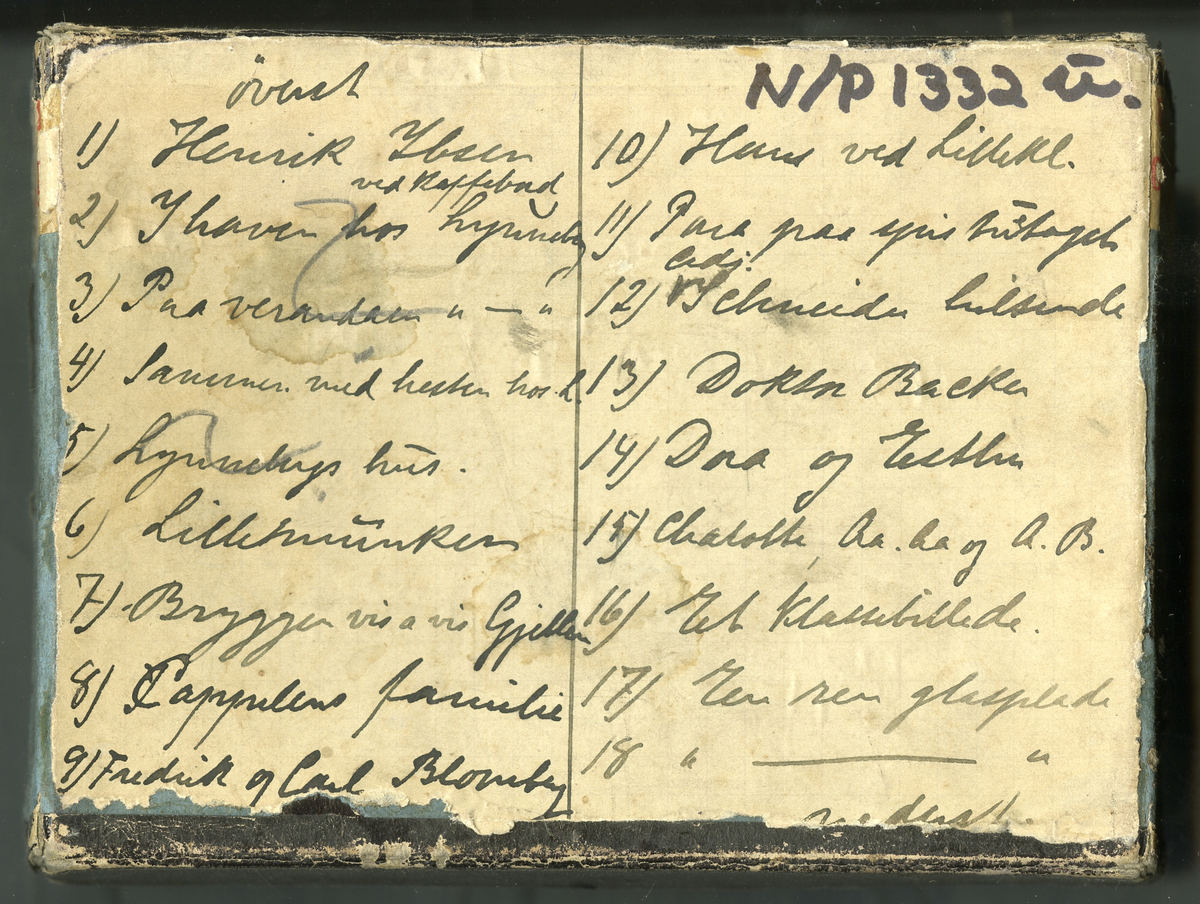 øverst
1) Henrik Ibsen
ved Kaffebord
2) I haven hos Lynneby
3) Paa verandaen " — "
4) Sammen med hesten hos L.
5) Lynnebys hus.
6) Lillemunken
7) Bryggen vis a vis
8) Cappelens familie
9) Fredrik og Carl Blomberg
N/P 1332 u.
10) Hans ved Lillekl.
11) paa
12) Schneider hilsende
13) Doktor Backer
14) Dora og Esther
15) Charlotte, Aa. Aa og A. B.
16) Et Klassebillede.
17) En ren glasplade
18 " — "
nederst.